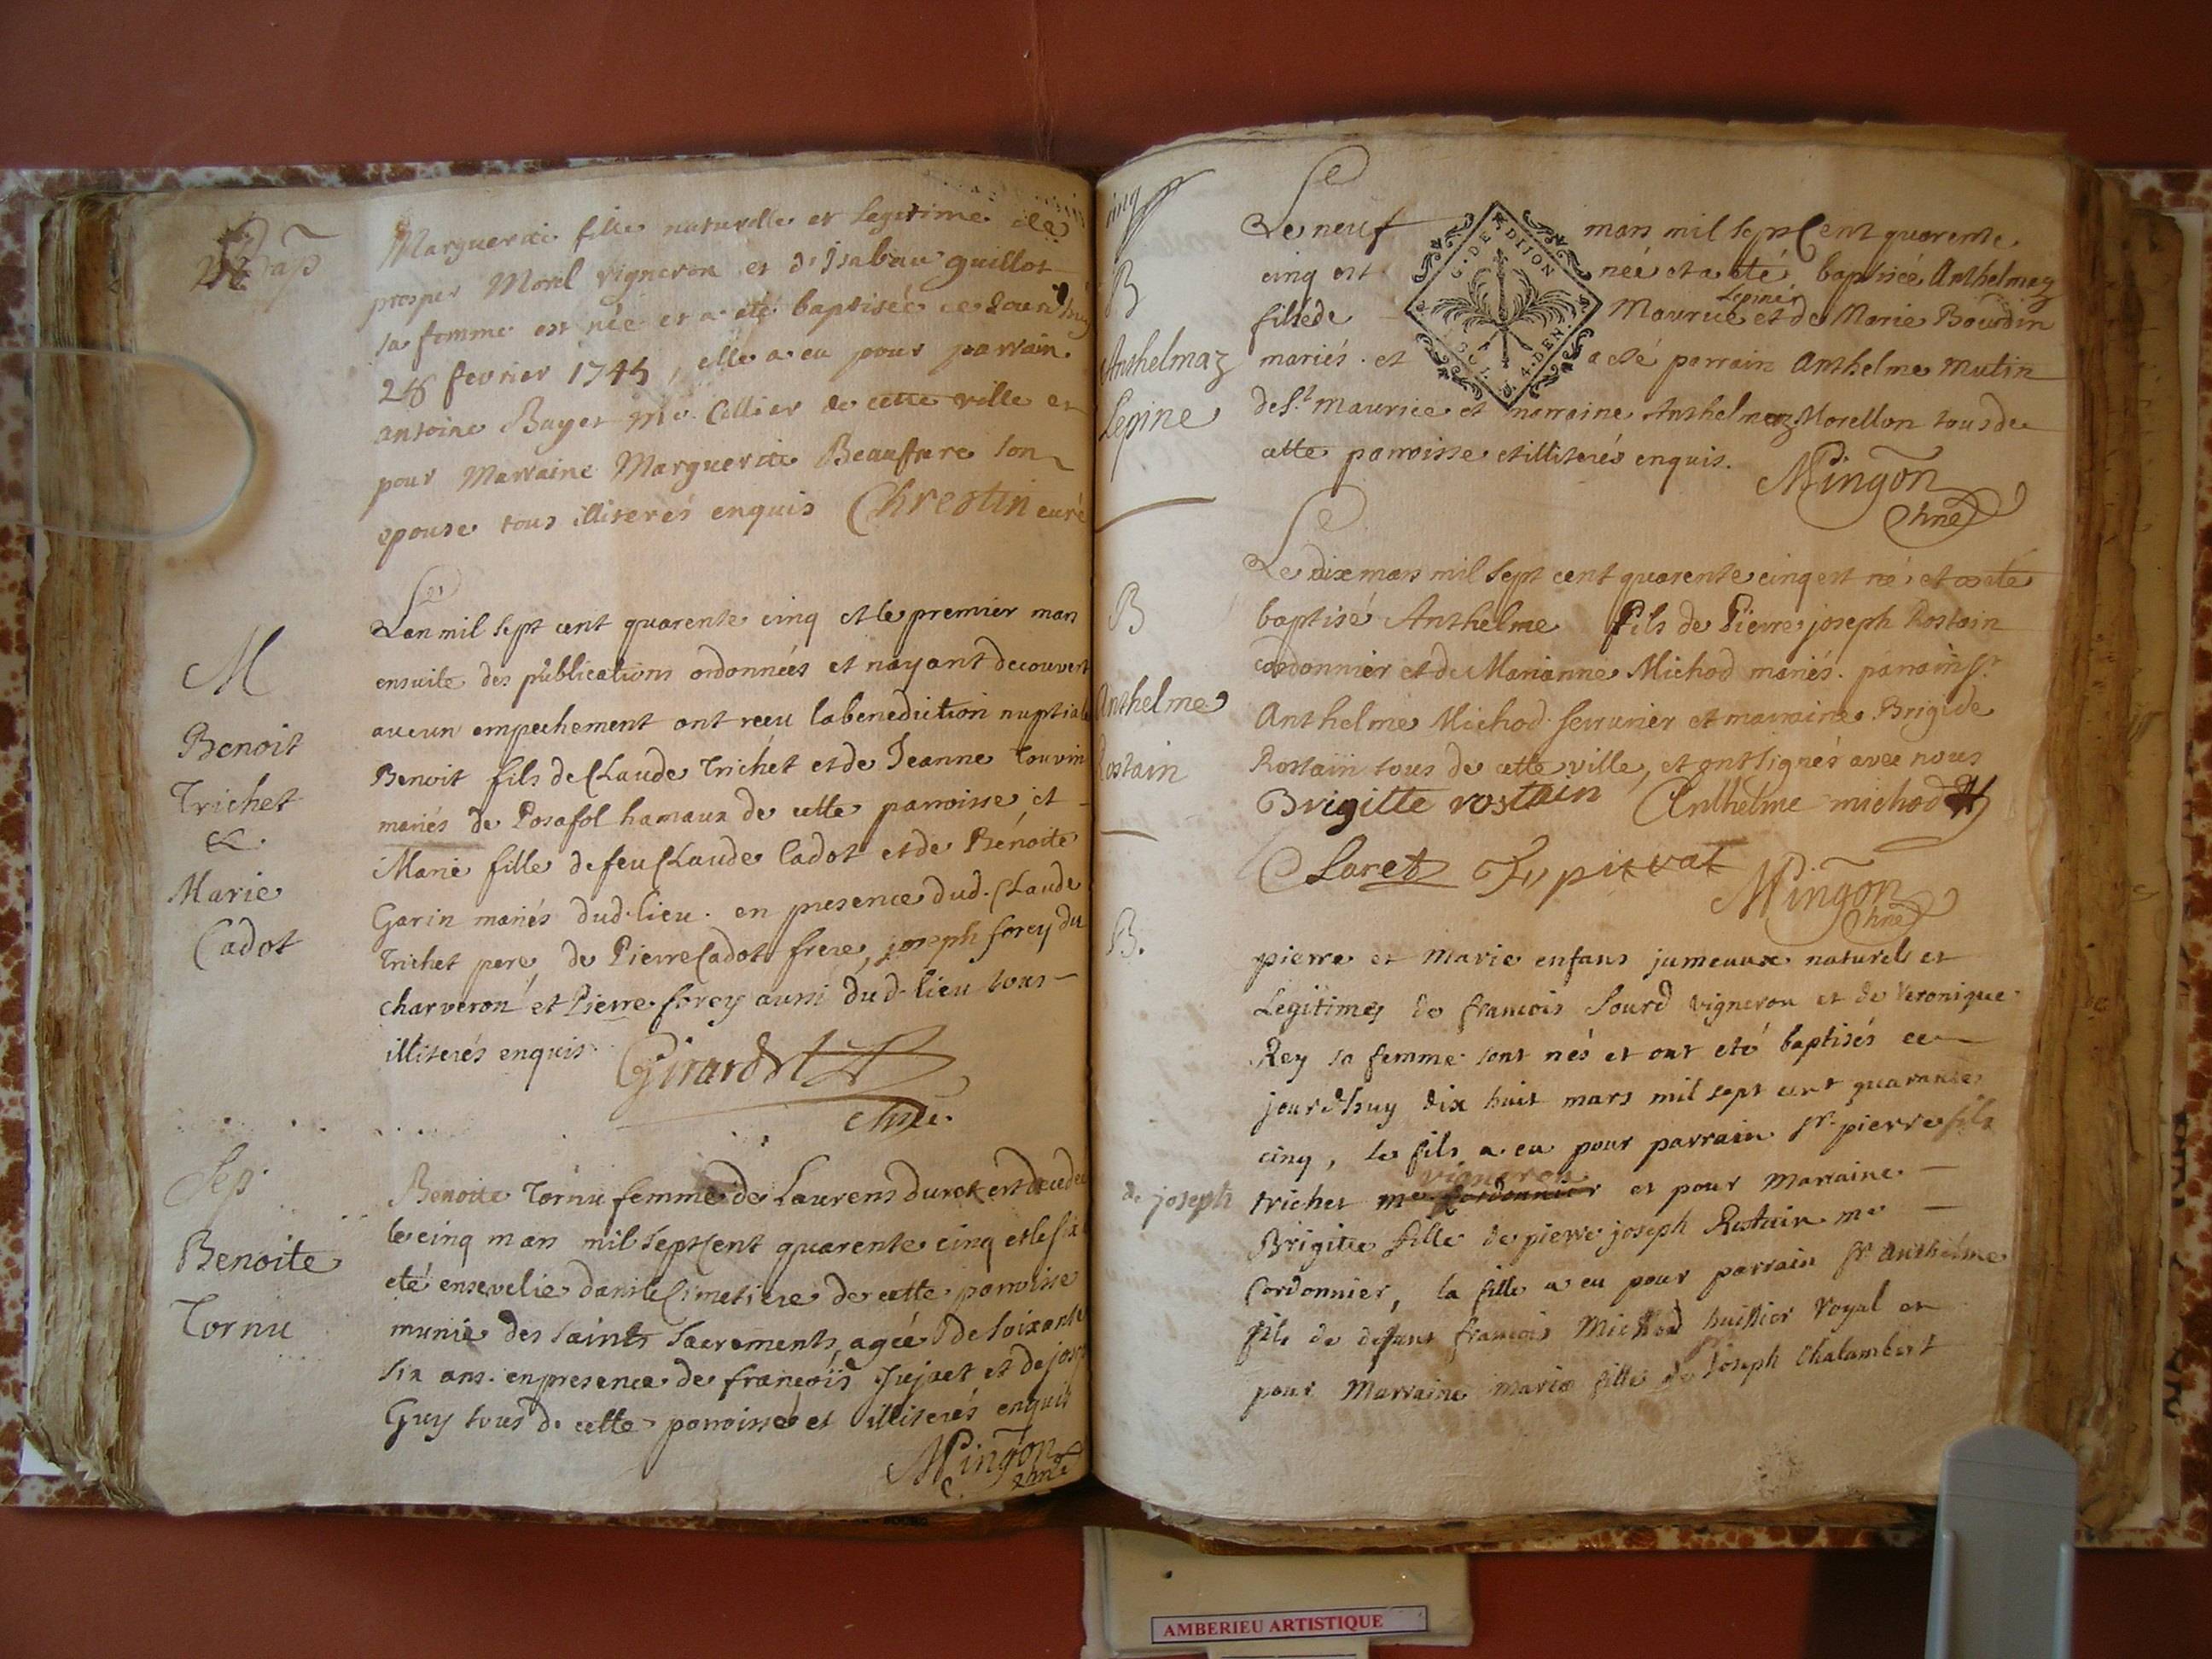 Bap
Marguerite fille naturelle et legitime de
prosper Morel vigneron et d'Isabau guillot
sa femme est née et a été baptisée ce jourd'huy
28 fevrier 1745, elle a eu pour parrain
antoine Bayet Me. Cellier de cette ville et
pour Marraine Marguerite Beaufrere son
epouse tous illiterés enquis Chrestin curé
M
Benoit
Trichet
&.
Marie
Cadot
Lan mil sept cent quarente cinq et le premier mars
ensuite des publications ordonnées et nayant decouvert
aucun empechement ont receu la benediction nuptiale
Benoit fils de Claude Trichet et de Jeanne Touvin
mariés de Posafol hamaux de cette parroisse et
Marie fille de feu Claude Cadot et de Bénoite
Garin mariés dud. lieu. en presence dud. Claude
Trichet pere, de Pierre Cadot frere, joseph forey du
charveron et Pierre forey aussi dud. lieu tous
illiterés enquis. Girardet
chne.
Sep.
Benoite
Tornu
Benoite Tornu femme de Laurens duret est decedée
le cinq mars mil sept Cent quarente cinq et le six
eté ensevelie dans le Cimetiere de cette parroisse
munie des saints sacrements, agée de soixante
six ans. en presence de françois Jujaet et de jos
Guy tous de cette parroisse et illiterés enquis
Mingon
chne
cinq
B
Anthelmaz
Lepine
Le neuf mars mil sept Cent quarente
cinq est née et a été baptisée Anthelmaz
fille de Maurice Lepine et de Marie Bourdin
mariés. et a eté parrain Anthelme Mutin
de St. Maurice et marraine Anthelmaz Morellon tous de
cette parroisse et illiterés enquis.
G. DE DIION
4. DEN.
Mingon
chne
B
Anthelme
Rostain
Le dix mars mil sept cent quarente cinq est né et a eté
baptisé Anthelme Fils de Pierre joseph Rostain
cordonnier et de Marianne Michod mariés. parrain Sr.
Anthelme Michod serrurier et marraine Brigide
Rostain tous de cette ville, et ont signés avec nous
Brigitte rostain Anthelme michod
Claret pitrat
Mingon
chne
B.
pierre et marie enfans jumeaux naturels et
Legitimes de francois Sourd vigneron et de Veronique
Rey sa femme sont nés et ont eté baptisés ce
jourd'huy dix huit mars mil sept cent quarante
cinq, le fils a eu pour parrain sr. pierre fils
de joseph
trichet me cordonnier vigneron et pour Marraine
Brigitte fille de pierre joseph Rostain me
Cordonnier, la fille a eu pour parrain sr. anthelme
fils de defunt francois Michod huissier Royal et
pour Marraine marie fille de Joseph Chalambert
AMBERIEU ARTISTIQUE